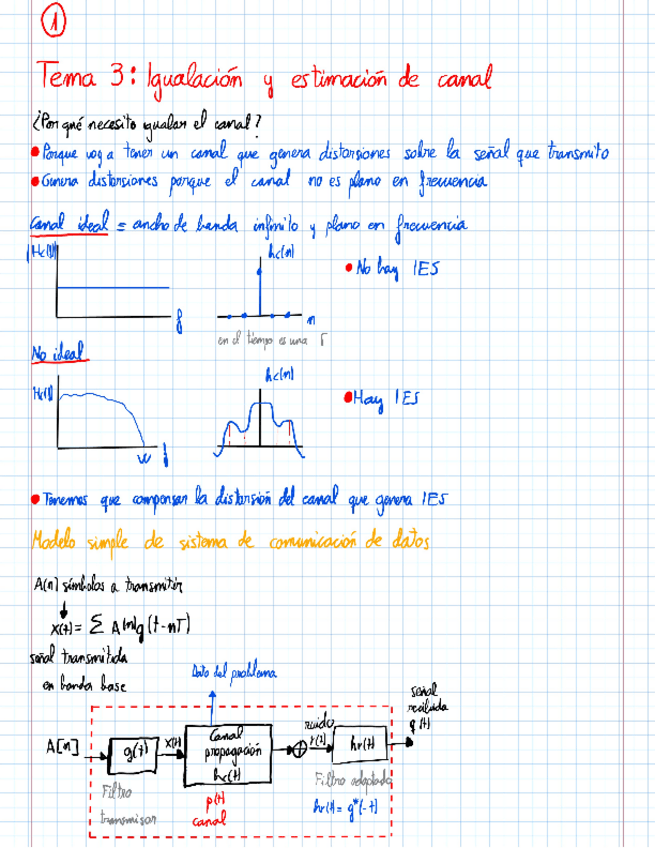 1
Tema 3: Igualación y estimación de canal
¿Por qué necesito igualar el canal?
• Porque voy a tener un canal que genera distorsiones sobre la señal que transmito
• Genera distorsiones porque el canal no es plano en frecuencia
Canal ideal = ancho de banda infinito y plano en frecuencia
|Hc(f)|
hc[n]
• No hay IES
f
n
en el tiempo es una
No ideal
Hc(f)
hc[n]
• Hay IES
w f
• Tenemos que compensar la distorsión del canal que genera IES
Modelo simple de sistema de comunicación de datos
A[n] símbolos a transmitir
x(t) = Σ A[n]g(t-nT)
señal transmitida
en banda base
Dato del problema
señal
recibida
q(t)
A[n]
g(t)
x(t)
Canal
propagación
hc(t)
ruido
r(t)
hr(t)
Filtro
transmisor
p(t)
canal
Filtro adaptado
hr(t) = g*(-t)